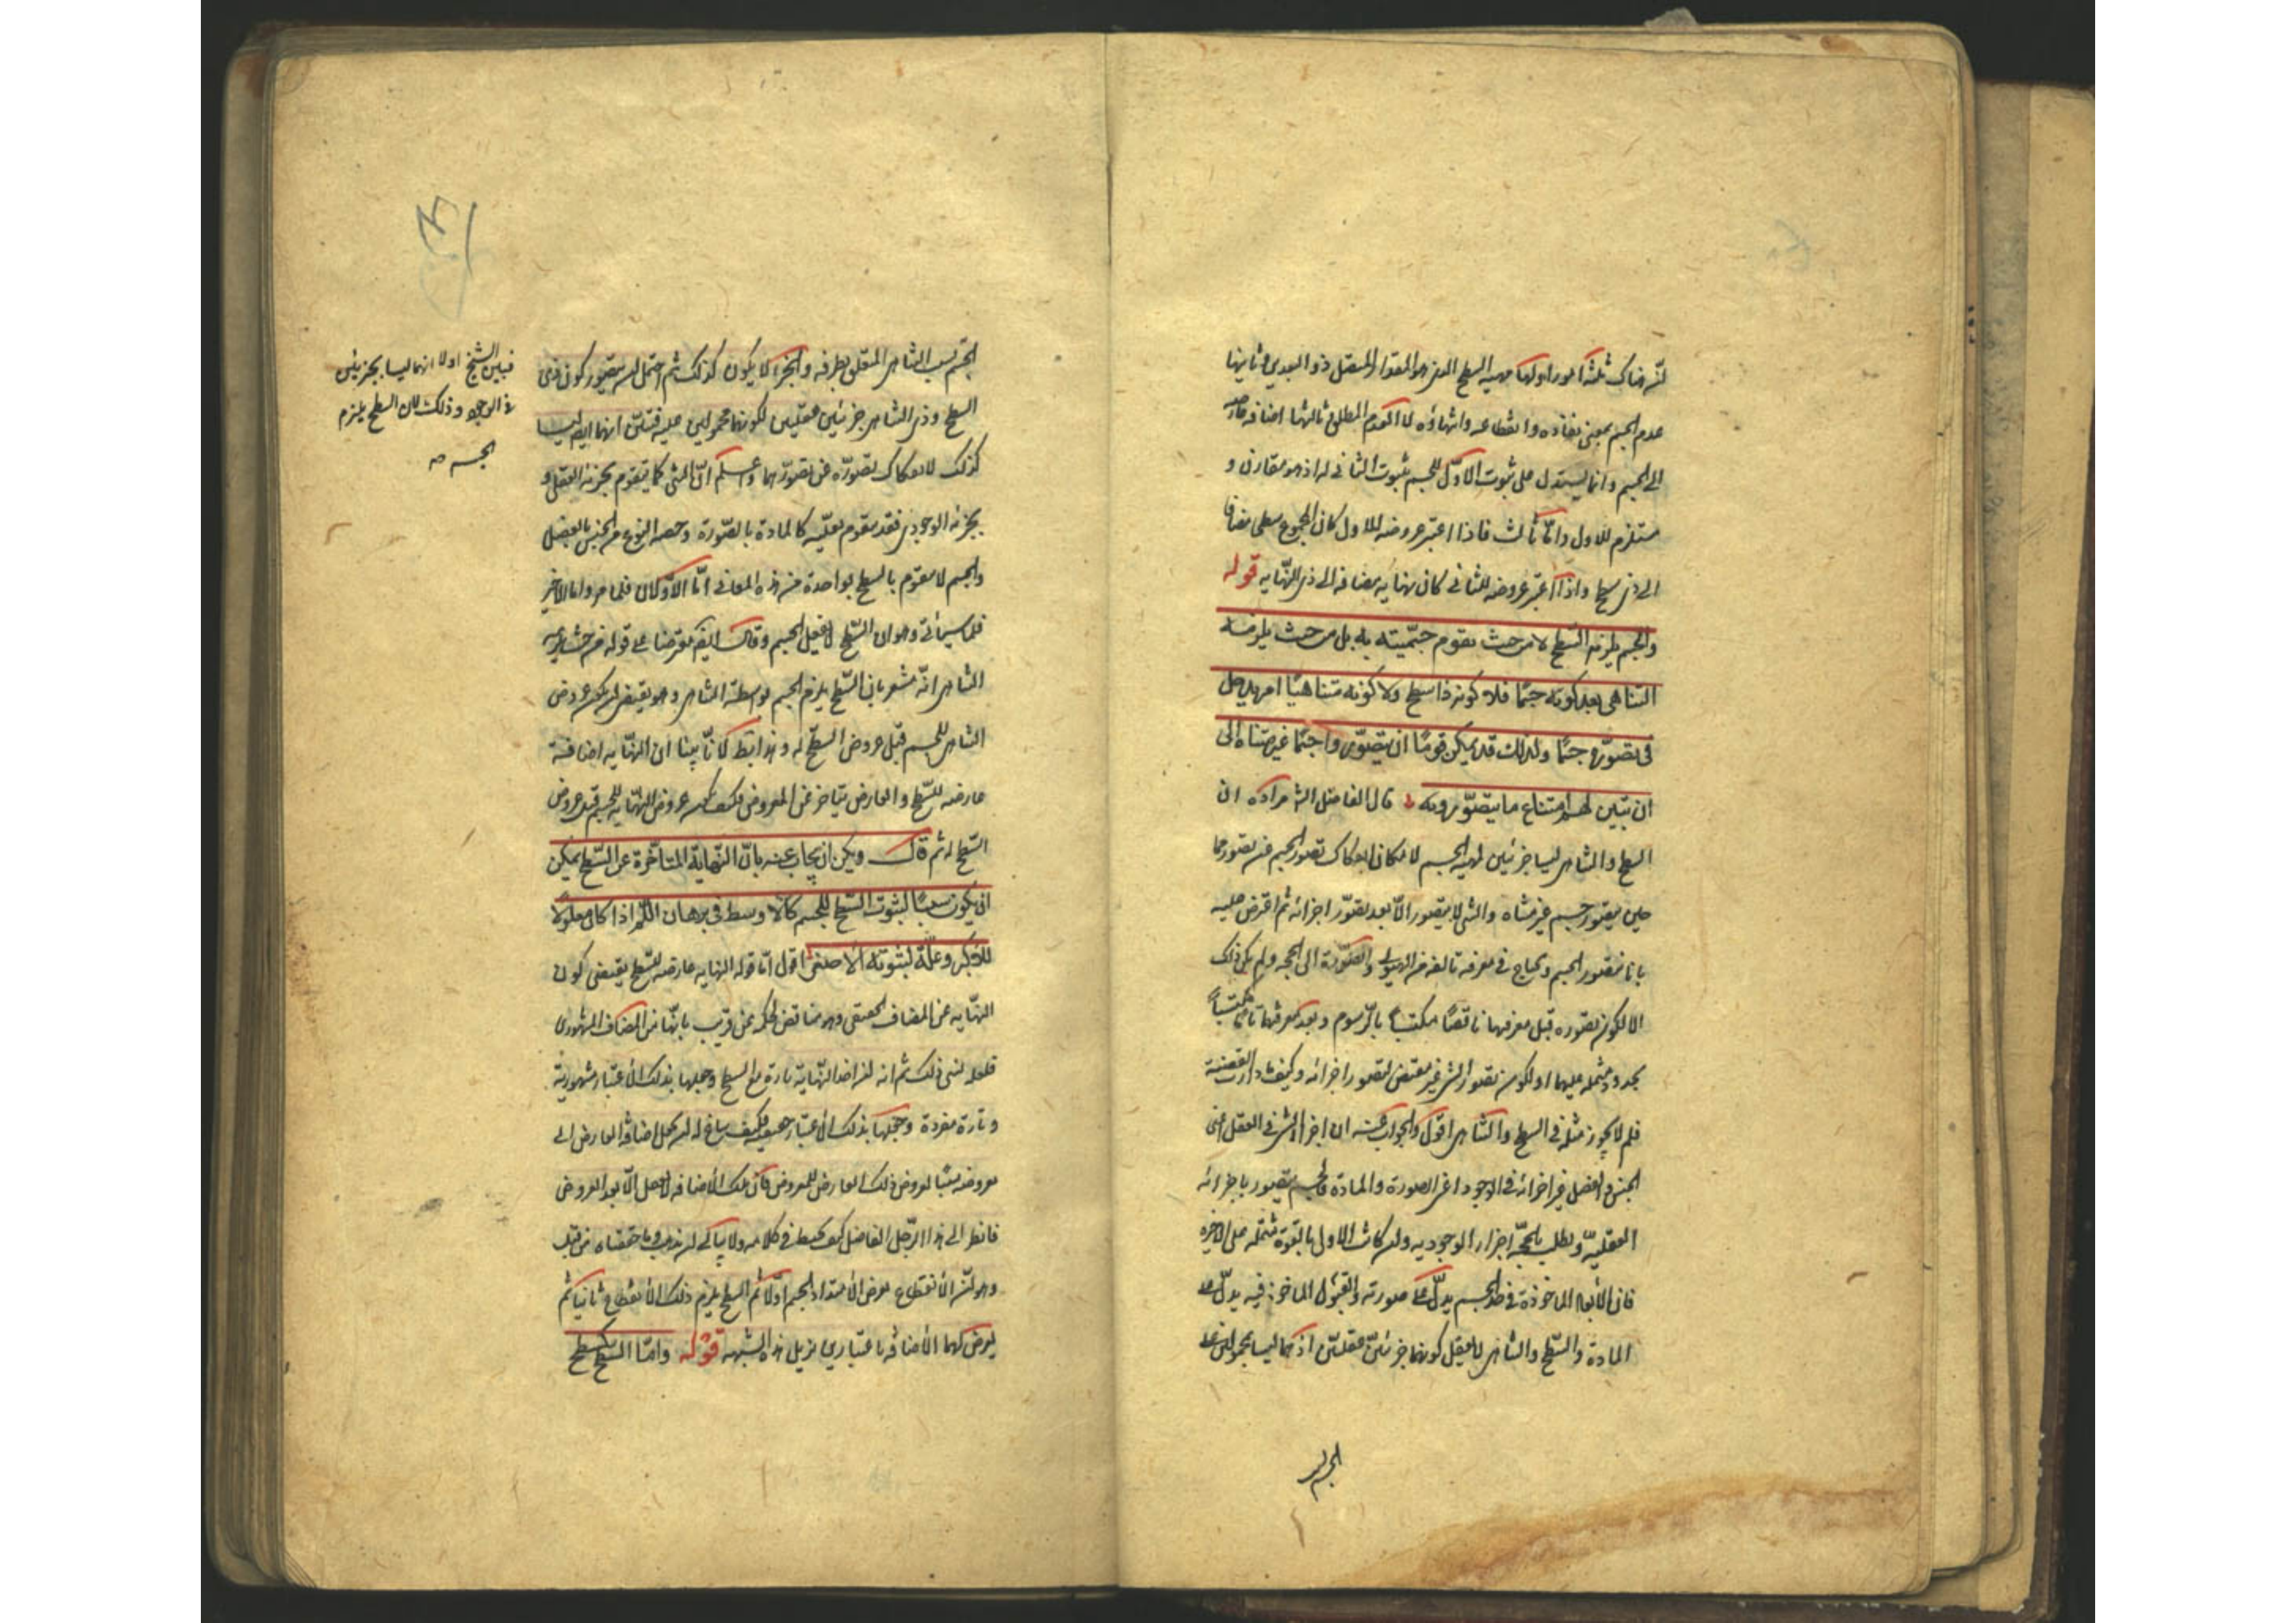 ان هناك ثلثة امور اولها مهية السطح الذى هو المقدار المتصل ذو البعدين وثانيها
عدم الجسم بمعنى نفاذه وانقطاعه وانتهاؤه لا العدم المطلق وثالثها اضافة عارضة
الى الجسم وانما يستدل على ثبوت الاول للجسم بثبوت الثانى له اذ هو مقارن و
مستلزم للاول واما الثالث فاذا اعتبر عروضه للاول كان المجموع سطحا مضافا
الى ذى سطح واذا اعتبر عروضه للثانى كان نهاية مضافة الى ذى النهاية قوله
والجسم يلزمه السطح لا من حيث تقوم جسميته به بل من حيث يلزمه
التناهى بعد كونه جسما فلا كونه ذا سطح ولا كونه متناهيا امر يدخل
فى تصوره جسما ولذلك قد يمكن قوما ان يتصوروا جسما غير متناه الى
ان تبين لهم امتناع ما يتصورونه قال الفاضل الش مراده ان
السطح والتناهى ليسا جزئين لمهية الجسم لامكان انفكاك تصور الجسم عن تصورهما
حين يتصور جسم غير متناه والشى لا يتصور الا بعد تصور اجزائه ثم اعترض عليه
بانا نتصور الجسم ونحتاج فى معرفة تالفه من الهيولى والصورة الى الحجة ولم يكن ذلك
الا لكون تصوره قبل معرفتهما ناقصا مكتسبا بالرسوم وبعد معرفتهما تاما مكتسبا
بحدود مشتملة عليهما او لكون تصور الشى غير مقتض لتصور اجزائه وكيف دارت القضية
فلم لا يجوز مثله فى السطح والتناهى اقول والجواب عنه ان اجزاء الشى فى العقل اعنى
الجنس والفصل غير اجزائه فى الوجود اعنى الصورة والمادة فالجسم يتصور باجزائه
العقلية ويطلب بالحجة اجزاءه الوجودية وان كانت الاول بالقوة مشتملة على الاخيرة
فان الابعاد الماخوذة فى حد الجسم يدل على صورته والقبول الماخوذ فيه يدل على
المادة والسطح والتناهى لا يعقل كونهما جزئين عقليين اذ هما ليسا بمحمولين على
الجسم بل
الجسم بسبب التناهى المتعلق بطرفه والجزء لا يكون كذلك ثم احتمل ان يتصور كون ذى
السطح وذى التناهى جزئين عقليين لكونهما محمولين عليه فتبين انهما ايضا ليسا
كذلك لانفكاك تصوره عن تصورهما واعلم ان الشى كما يتقوم بجزئه العقلى و
بجزئه الوجودى فقد يتقوم بعلته كالمادة بالصورة وحصة النوع من الجنس بالفصل
والجسم لا يتقوم بالسطح بواحدة من هذه المعانى اما الاولان فلما مر واما الاخير
فلما سيأتى وهو ان السطح لا يفعل الجسم وقال ايضا معترضا على قوله من حيث يلزمه
التناهى انه مشعر بان السطح يلزم الجسم بواسطة التناهى وهو يقتضى ان يكون عروض
التناهى للجسم قبل عروض السطح له وهذا باطل لانا بينا ان النهاية اضافة
عارضة للسطح والعارض يتأخر عن المعروض فكيف يكون عروض النهاية للجسم قبل عروض
السطح له ثم قال ويمكن ان يجاب عنه بان النهاية المتأخرة عن السطح يمكن
ان يكون سببا لثبوت السطح للجسم كالاوسط فى برهان اللم اذا كان معلولا
للاكبر وعلة لثبوته للاصغر اقول اما قوله النهاية عارضة للسطح يقتضى كون
النهاية من المضاف الحقيقى وهو مناقض لحكمه عن قريب بانها من المضاف المشهورى
فلعله نسى ذلك ثم انه اخذ النهاية تارة مع السطح وجعلها بذلك الاعتبار مشهورية
وتارة مفردة وجعلها بذلك الاعتبار حقيقية فكيف ساغ له ان يجعل اضافة العارض الى
معروضه سببا لعروض ذلك العارض للمعروض فان تلك الاضافة لا تحصل الا بعد العروض
فانظر الى هذا الرجل الفاضل كيف يخبط فى كلامه ولا يبالى اين يذهب وما حققناه من قبل
وهو ان الانقطاع يعرض الامتداد الجسم اولا ثم السطح يلزم ذلك الانقطاع ثانيا ثم
يعرض لهما الاضافة باعتبارين يزيل هذه الشبهة قوله واما السطح كسطح
فبين الشيخ اولا انهما ليسا بجزئين
فى الوجود وذلك لان السطح يلزم
الجسم صح